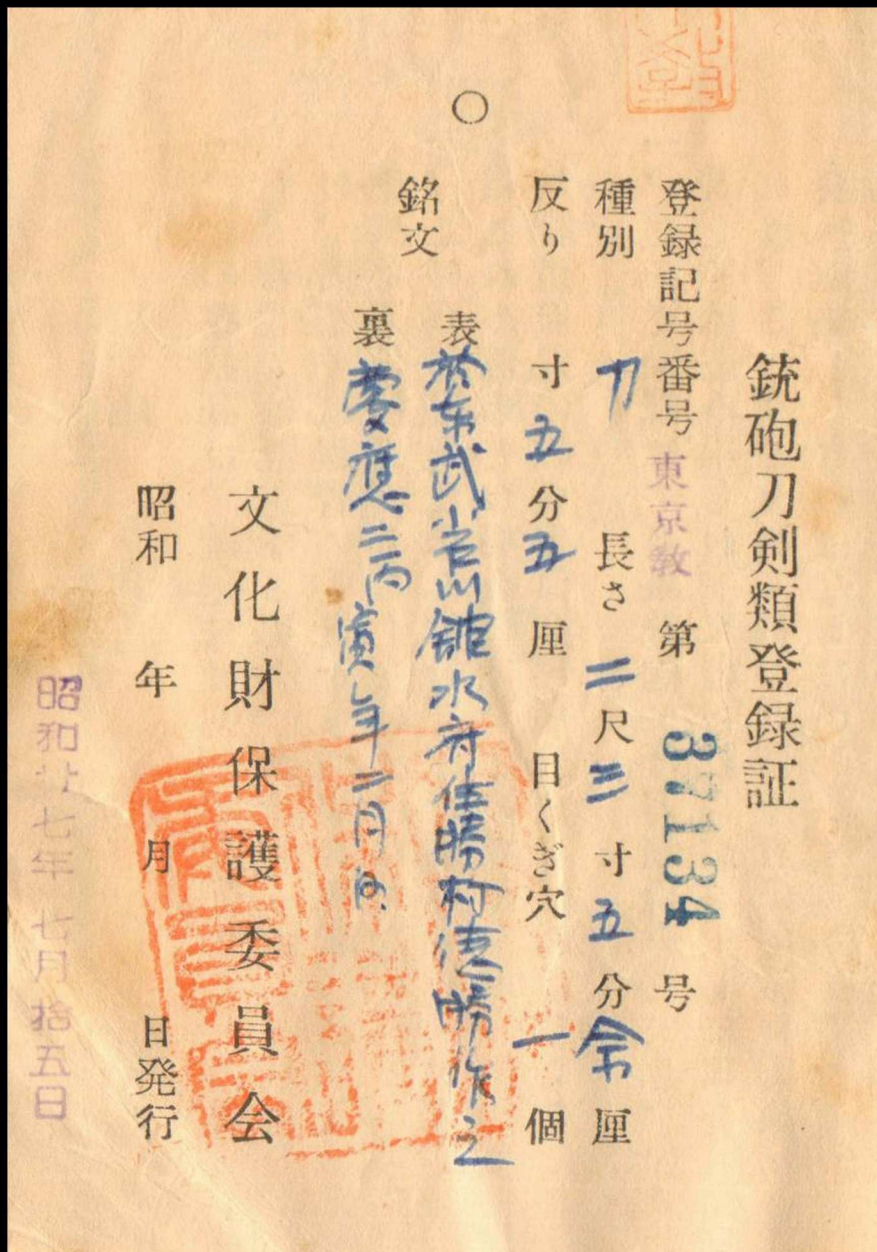 銃砲刀剣類登録証
登録記号番号 東京教 第 37134 号
種別 刀 長さ 二尺三寸五分令厘
反り 寸五分五厘 目くぎ穴 一個
銘文
表 於東武小石川舘水府住勝村徳勝作之
裏 慶應二丙寅年二月日
文化財保護委員会
昭和 年 月 日発行
昭和廿七年 七月拾五日